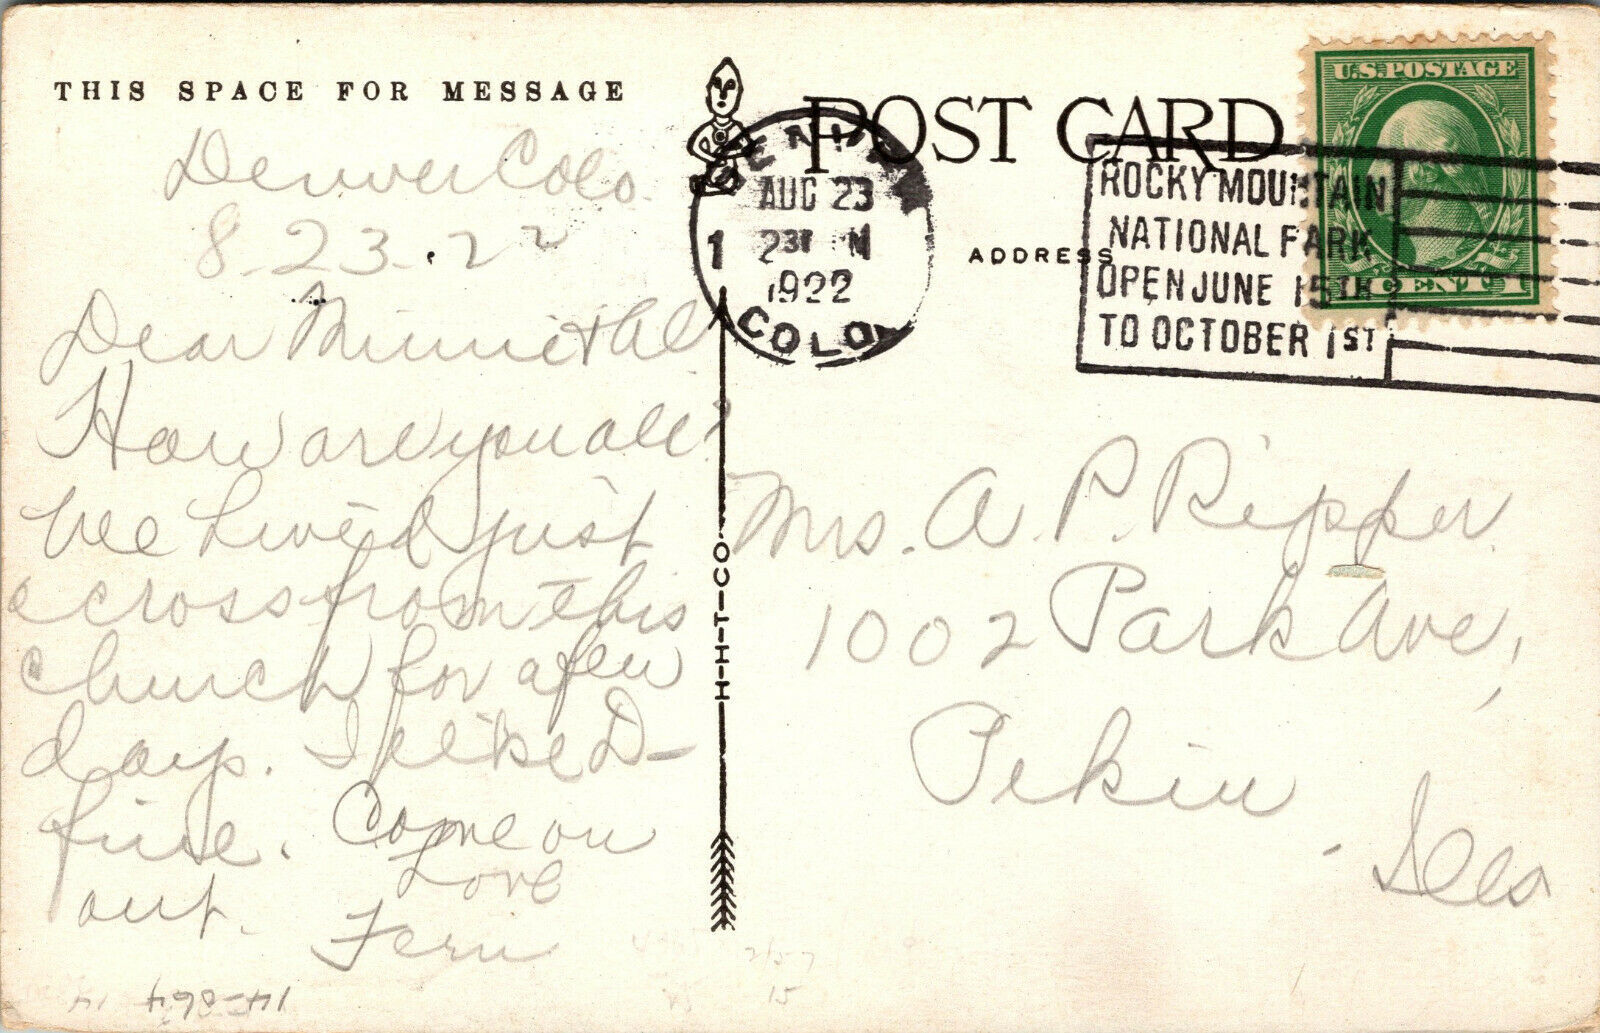 THIS SPACE FOR MESSAGE
Denver Colo.
8-23-22
Dear Minnie & Al
How are you all?
We lived just
across from this
church for a few
days. I like D-
fine. Come on
out. Love
Fern
14-864 14
H-H-T-CO.
POST CARD
ADDRESS
DENVER
AUG 23
1
1922
COLO.
ROCKY MOUNTAIN
NATIONAL PARK
OPEN JUNE 15TH
TO OCTOBER 1ST
U.S. POSTAGE
1 CENT 1
Mrs. A. P. Ripper
1002 Park Ave,
Pekin
Ills
15